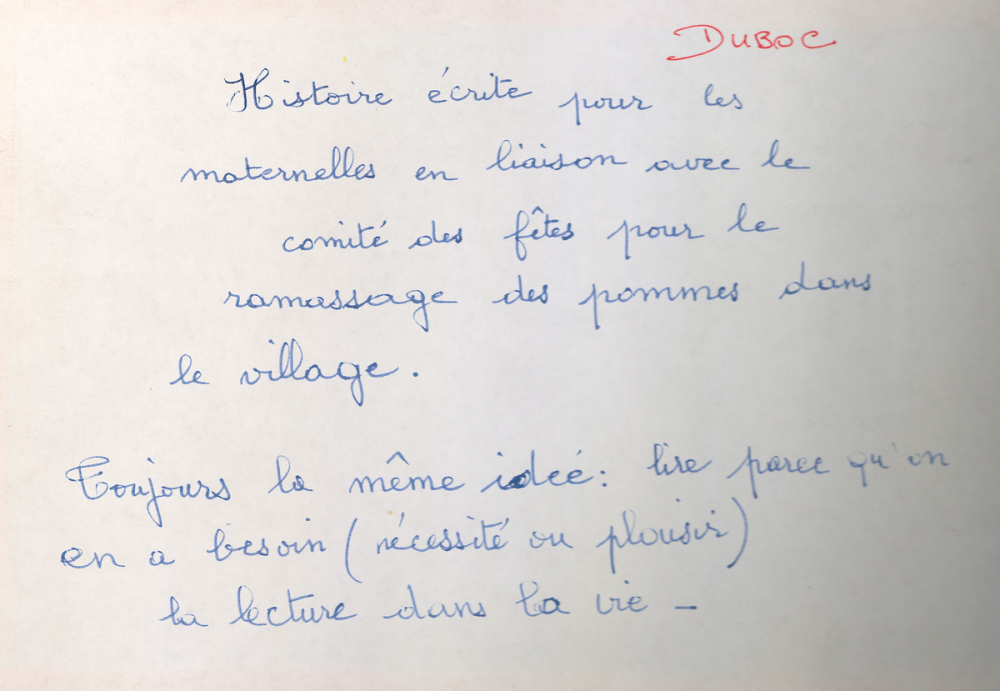 DUBOC
Histoire écrite pour les
maternelles en liaison avec le
comité des fêtes pour le
ramassage des pommes dans
le village.
Toujours la même idée : lire parce qu'on
en a besoin (nécessité ou plaisir)
la lecture dans la vie -